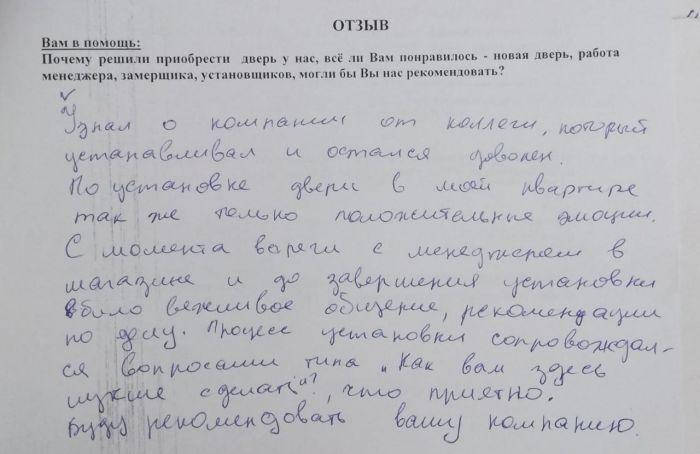 ОТЗЫВ
Вам в помощь:
Почему решили приобрести дверь у нас, всё ли Вам понравилось - новая дверь, работа
менеджера, замерщика, установщиков, могли бы Вы нас рекомендовать?
Узнал о компании от коллеги, который
устанавливал и остался доволен.
По установке двери в моей квартире
так же только положительные эмоции.
С момента с менеджером в
магазине и до завершения установки
было вежливое общение, рекомендации
по делу. Процесс установки сопровождал-
ся вопросами типа „Как вам здесь
лучше сделать"?, что приятно.
Буду рекомендовать вашу компанию.